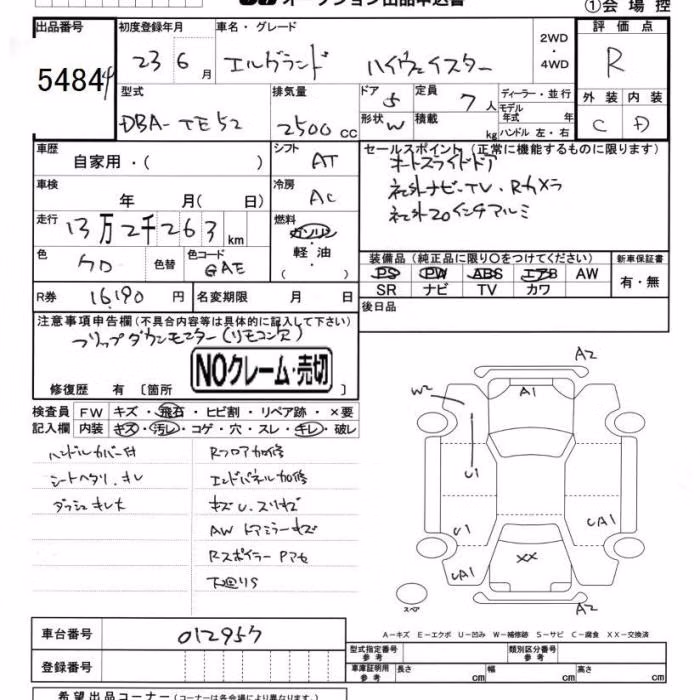 オークション出品申込書
①会場控
出品番号 初度登録年月 車名・グレード 2WD・4WD 評価点
54844 23 6月 エルグランド ハイウェイスター R
型式 排気量 ドア 5 定員 7人 ディーラー・並行 外装 内装
モデル年式 年
DBA-TE52 2500cc 形状 W 積載 kg ハンドル 左・右 C D
車歴 自家用・( ) シフト AT セールスポイント(正常に機能するものに限ります)
オートスライドドア
車検 年 月( 日) 冷房 AC 社外ナビ・TV・Rカメラ
社外20インチアルミ
走行 13万2千263km 燃料 ガソリン・軽油・( )
装備品(純正品に限り○をつけてください) 新車保証書
色 クロ 色替 色コード GAE PS PW ABS エアB AW 有・無
SR ナビ TV カワ
R券 16,190円 名変期限 月 日 後日品
注意事項申告欄(不具合内容等は具体的に記入して下さい)
フリップダウンモニター(リモコン欠)
NOクレーム・売切
修復歴 有 〔箇所 〕
検査員 FW キズ・飛石・ヒビ割・リペア跡・×要
記入欄 内装 キズ・汚レ・コゲ・穴・スレ・キレ・破レ
ハンドルカバー付 Rフロア加修
シートヘタリ.キレ エンドパネル加修
ダッシュキレ大 キズU.スリキズ
AW ドアミラーキズ
Rスポイラー Pアセ
下廻りS
A2
W2 A1
U1
U1 CA1
CA1 XX
スペア A2
A-キズ E-エクボ U-凹み W-補修跡 S-サビ C-腐食 XX-交換済
車台番号 012957
型式指定番号 参考 類別区分番号 参考
登録番号 車庫証明用 参考 長さ cm 幅 cm 高さ cm
希望出品コーナー(コーナーは各会場により異なります。)